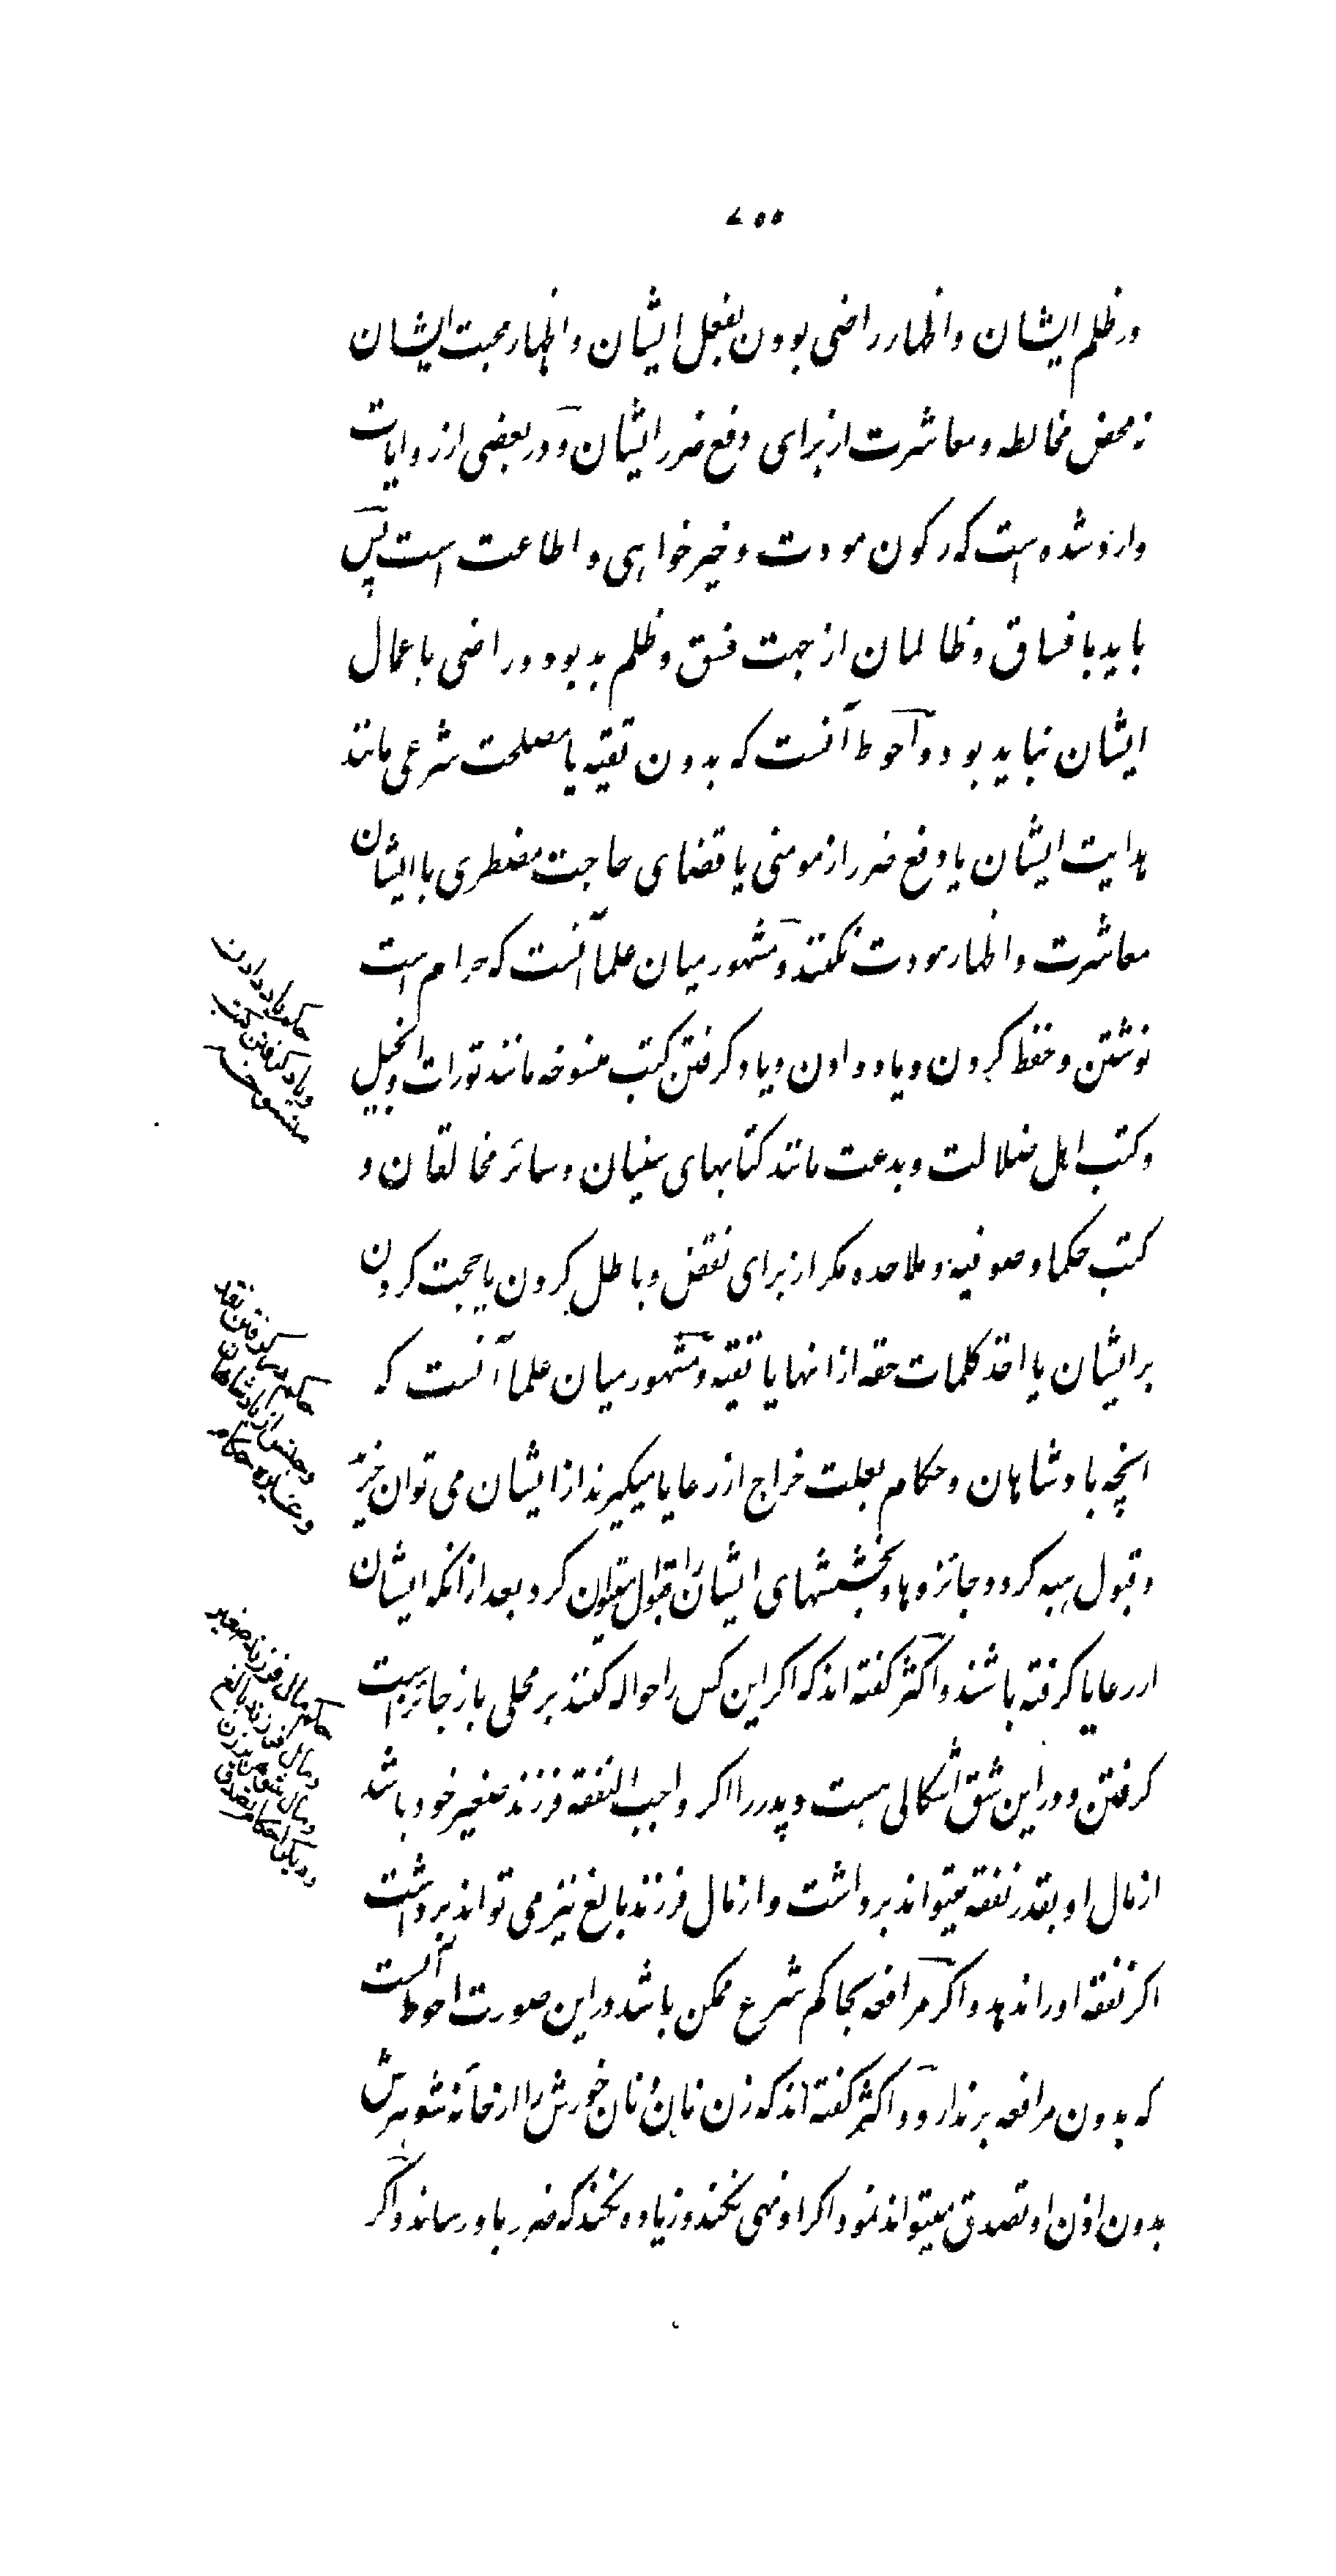 ۷۰۰
در ظلم ایشان و اظهار راضی بودن بفعل ایشان و اظهار محبت ایشان
نه محض مخالطه و معاشرت از برای دفع ضرر ایشان و در بعضی از روایات
وارد شده است که رکون مودت و خیرخواهی و اطاعت است پس
باید با فساق و ظالمان از جهت فسق و ظلم بد بود و راضی باعمال
ایشان نباید بود و احوط آنست که بدون تقیه یا مصلحت شرعی مانند
هدایت ایشان یا دفع ضرر از مومنی یا قضای حاجت مضطری با ایشان
معاشرت و اظهار مودت نکنند و مشهور میان علما آنست که حرام است
نوشتن و حفظ کردن و یاد دادن و یاد گرفتن کتب منسوخه مانند تورات و انجیل
و کتب اهل ضلالت و بدعت مانند کتابهای سنیان و سائر مخالفان و
کتب حکما و صوفیه و ملاحده مگر از برای نقض و باطل کردن یا حجت کردن
بر ایشان یا اخذ کلمات حقه از انها یا تقیه و مشهور میان علما آنست که
انچه بادشاهان و حکام بعلت خراج از رعایا میگیرند از ایشان می توان خرید
و قبول هبه کرد و جائزه ها و بخششهای ایشان را قبول میتوان کرد بعد از انکه ایشان
از رعایا گرفته باشند و اکثر گفته اند که اگر این کس را حواله کنند بر محلی باز جائز است
گرفتن و در این شق اشکالی هست و پدر را اگر واجب النفقه فرزند صغیر خود باشد
از مال او بقدر نفقه میتواند برداشت و از مال فرزند بالغ نیز می تواند برداشت
اگر نفقه او را ندهد و اگر مرافعه بحاکم شرع ممکن باشد در این صورت احوط آنست
که بدون مرافعه برندارد و اکثر گفته اند که زن نان و نان خورش را از خانه شوهرش
بدون اذن او تصدق میتواند نمود اگر او نهی نکند و زیاده نکند که ضرر باو رساند و اگر
حکم یاد دادن
و یاد گرفتن کتب
منسوخه
حکم گرفتن نقد
و جنس از پادشاهان
و غیره حکام
حکم مال فرزند صغیر
و مال فرزند بالغ
و مال شوهر بر زن
و دیگر احکام تصدق